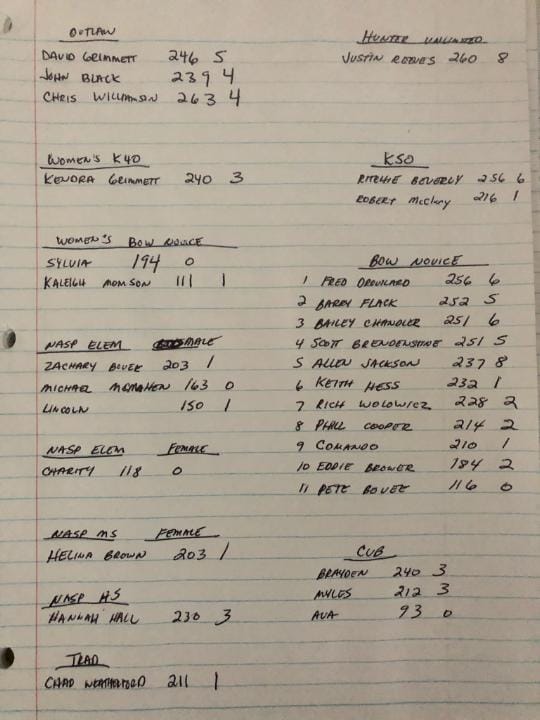 OUTLAW
DAVID GRIMMETT 246 5
JOHN BLACK 239 4
CHRIS WILLIAMSON 263 4
HUNTER UNLIMITED
JUSTIN REEVES 260 8
WOMEN'S K40
KENDRA GRIMMETT 240 3
K50
RITCHIE BEVERLY 256 6
ROBERT McClary 216 1
WOMEN'S BOW NOVICE
SYLVIA 194 0
KALEIGH MOMSON 111 1
BOW NOVICE
1 FRED DROUILARD 256 6
2 BARRY FLACK 252 5
3 BAILEY CHANDLER 251 6
4 SCOTT BRENDENSTINE 251 5
5 ALLEN JACKSON 237 8
6 KEITH HESS 232 1
7 RICH WOLOWICZ 228 2
8 PHILL COOPER 214 2
9 COMANDO 210 1
10 EDDIE BROWER 184 2
11 PETE BOVEE 116 0
NASP ELEM MALE
ZACHARY 203 1
MICHAEL MCMAHEN 163 0
LINCOLN 150 1
NASP ELEM FEMALE
CHARITY 118 0
NASP MS FEMALE
HELINA BROWN 203 1
NASP HS
HANNAH HALL 230 3
CUB
BRAYDEN 240 3
MYLES 212 3
AVA 93 0
TRAD
CHAD WEATHERFORD 211 1